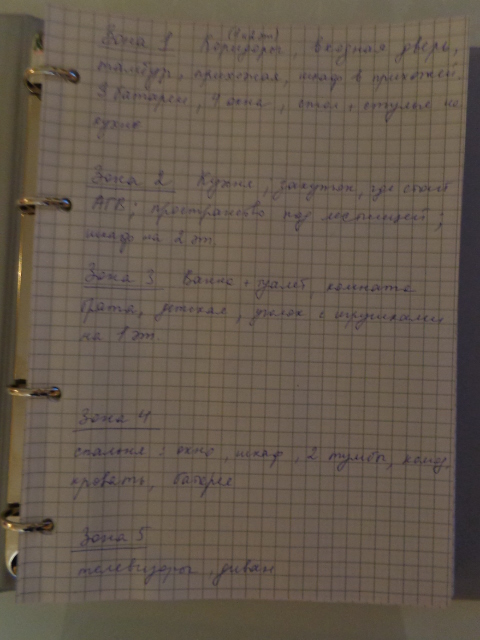 (1 и 2 эт)
Зона 1 Коридоры, входная дверь,
тамбур, прихожая, шкаф в прихожей.
3 батареи, 4 окна, стол, стулья на
кухне
Зона 2 Кухня, закуток, где стоит
АГВ; пространство под лестницей;
шкаф на 2 эт.
Зона 3 Ванна + туалет, комната
брата, детская, уголок с игрушками
на 1 эт.
Зона 4
спальня: окно, шкаф, 2 тумбы, комод,
кровать, батарея
Зона 5
телевизоры, диван